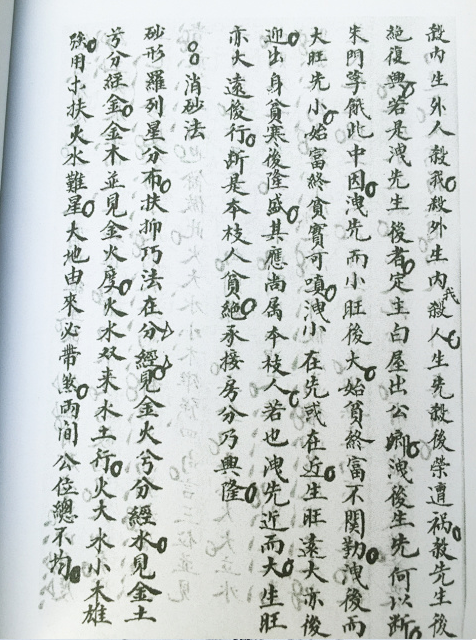 殺內生外人殺我殺外生內我殺人生先殺後榮遭禍殺先生後
絕復興若是洩先生後者定主白屋出公卿洩後生先何以断
朱門等餓此中因洩先而小旺後大始貧終富不関勤洩後而
大旺先小始富終貧實可項洩小在先或在近生旺遠大亦後
迎出身貧寒後隆盛其應尚属本枝人若也洩先近而大生旺
亦大遠後行所是本枝人貧絕承接房分乃興隆
消砂法
砂形羅列星分布扶抑巧法在分經見金火兮分經水見金土
兮分經金金木並見金火度火水双来水土行火大水小木雄
強用土扶火水難星大地由來必帶煞兩间公位總不均